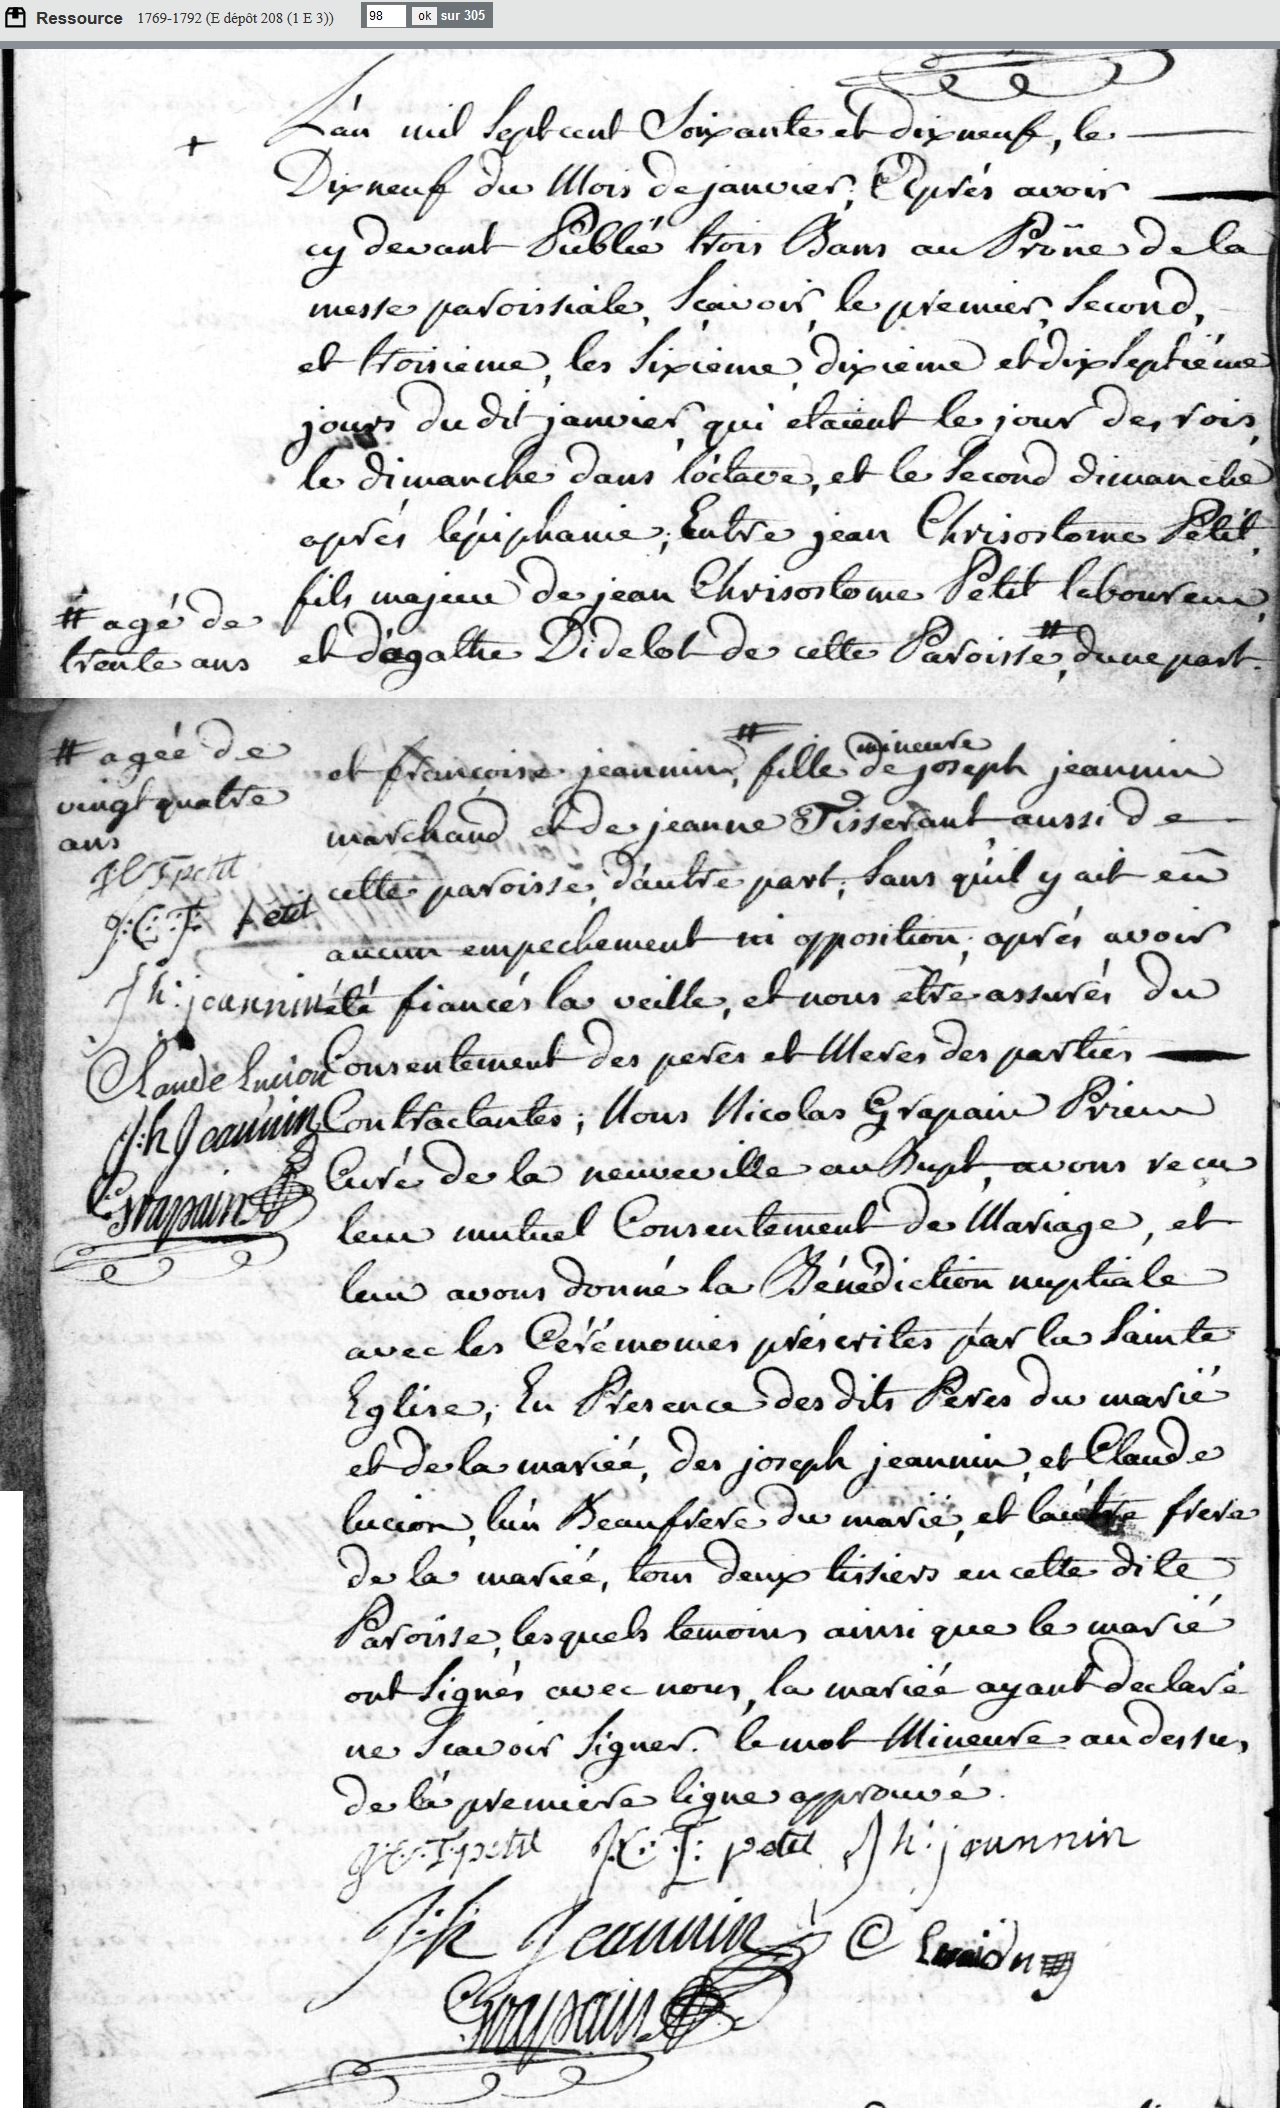 Ressource 1769-1792 (E dépôt 208 (1 E 3)) 98 ok sur 305
+
L'an mil Sept cent Soixante et dix neuf, le
Dix neuf du Mois de janvier; Après avoir
cy devant Publié trois Bans au Prône de la
messe paroissiale, Sçavoir, le premier, Second,
et troisieme, les Sixieme, dixieme et dix Septiéme
jours du dit janvier, qui etaient le jour des rois,
le dimanche dans l'octave, et le Second dimanche
après l'épiphanie; Entre jean Chrisostome Petit,
fils majeur de jean Chrisostome Petit laboureur,
# agé de
trente ans
et d'agathe Didelot de cette Paroisse,# d'une part.
# agée de
vingt quatre
ans
et françoise jeannin,# fille mineure de joseph jeannin
marchand et de jeanne Tisserant aussi de
cette paroisse, d'autre part, Sans qu'il y ait eû
aucun empechement ni opposition; après avoir
été fiancés la veille, et nous etre assurés du
Consentement des peres et Meres des parties
Contractantes; Nous Nicolas Grapain Prieur
Curé de la neuveville au Bupt, avons reçu
leur mutuel Consentement de Mariage, et
leur avons donné la Bénédiction nuptiale
avec les Cérémonies préscrites par la Sainte
Eglise; En Présence des dits Peres du marié
et de la mariée, des joseph jeannin, et Claude
lucion, l'un Beaufrere du marié, et l'autre frere
de la mariée, tous deux tissiers en cette dite
Paroisse, lesquels temoins ainsi que le marié
ont Signés avec nous, la mariée ayant declaré
ne Scavoir Signer. le mot Mineure au dessus
de la premiere ligne approuvé.
J:C:T petit
J:C:T: petit
Jh: jeannin
Claude Lucion
J:h Jeannin
Grapain
J:C:T:petit J:C:T: petit Jh: jeannin
J:h Jeannin C Lucion
Grapain